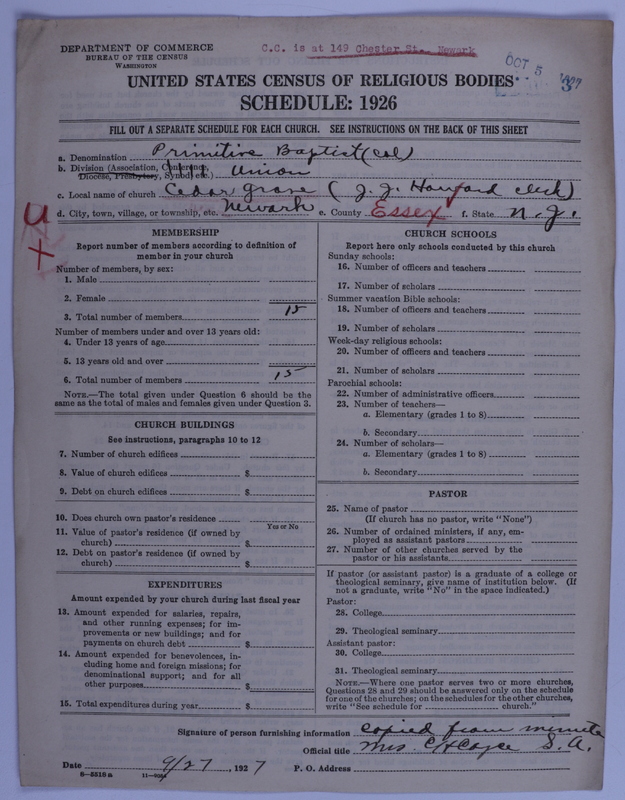 DEPARTMENT OF COMMERCE
BUREAU OF THE CENSUS
WASHINGTON
C.C. is at 149 Chester St. Newark
OCT 5
UNITED STATES CENSUS OF RELIGIOUS BODIES
SCHEDULE: 1926
FILL OUT A SEPARATE SCHEDULE FOR EACH CHURCH. SEE INSTRUCTIONS ON THE BACK OF THIS SHEET
a. Denomination Primitive Baptist (Col)
b. Division (Association, Conference, Diocese, Presbytery, Synod, etc.) Union
c. Local name of church Cedar Grove (J. J. clerk)
d. City, town, village, or township, etc. Newark e. County Essex f. State N. J.
MEMBERSHIP
Report number of members according to definition of
member in your church
Number of members, by sex:
1. Male
2. Female
3. Total number of members 15
Number of members under and over 13 years old:
4. Under 13 years of age
5. 13 years old and over
6. Total number of members 15
NOTE.—The total given under Question 6 should be
same as the total of males and females given under Question 3.
CHURCH BUILDINGS
See instructions, paragraphs 10 to 12
7. Number of church edifices
8. Value of church edifices $
9. Debt on church edifices $
10. Does church own pastor's residence
Yes or No
11. Value of pastor's residence (if owned by
church) $
12. Debt on pastor's residence (if owned by
church) $
EXPENDITURES
Amount expended by your church during last fiscal year
13. Amount expended for salaries, repairs,
and other running expenses; for im-
provements or new buildings; and for
payments on church debt $
14. Amount expended for benevolences, in-
cluding home and foreign missions; for
denominational support; and for all
other purposes $
15. Total expenditures during year $
CHURCH SCHOOLS
Report here only schools conducted by this church
Sunday schools:
16. Number of officers and teachers
17. Number of scholars
Summer vacation Bible schools:
18. Number of officers and teachers
19. Number of scholars
Week-day religious schools:
20. Number of officers and teachers
21. Number of scholars
Parochial schools:
22. Number of administrative officers
23. Number of teachers—
a. Elementary (grades 1 to 8)
b. Secondary
24. Number of scholars—
a. Elementary (grades 1 to 8)
b. Secondary
PASTOR
25. Name of pastor
(If church has no pastor, write "None")
26. Number of ordained ministers, if any, em-
ployed as assistant pastors
27. Number of other churches served by the
pastor or his assistants
If pastor (or assistant pastor) is a graduate of a college or
theological seminary, give name of institution below. (If
not a graduate, write "No" in the space indicated.)
Pastor:
28. College
29. Theological seminary
Assistant pastor:
30. College
31. Theological seminary
NOTE.—Where one pastor serves two or more churches,
Questions 28 and 29 should be answered only on the schedule
for one of the churches; on the schedules for the other churches,
write "See schedule for church."
Signature of person furnishing information Copied from minute
Official title Mrs. S. A.
Date 9/27, 1927 P. O. Address